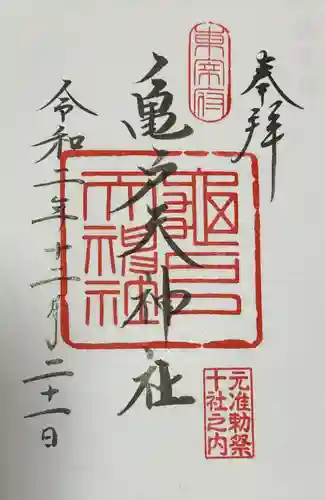 奉拝
東宰府
亀戸天神社
亀戸天神社
元准勅祭
十社之内
令和二年十二月二十一日